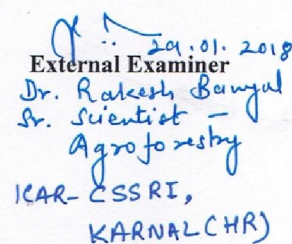 29.01.2018
External Examiner
Dr. Rakesh Banyal
Sr. Scientist –
Agroforestry
ICAR- CSSRI,
KARNAL (HR)